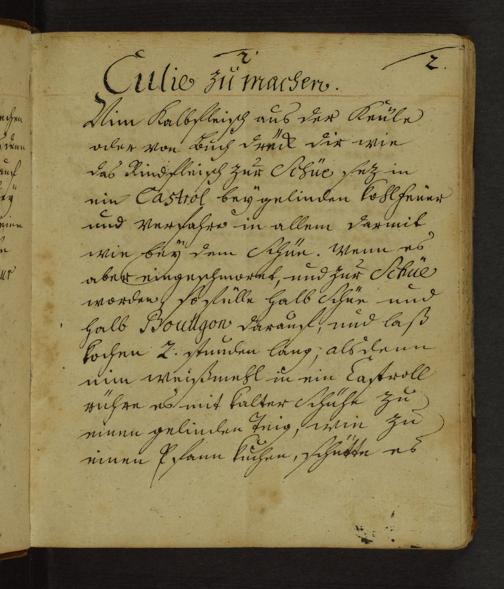 2.
2.
Culie zu machen.
Nim Kalbfleisch aus der Keule
oder von buch drück dir wie
das Rindfleisch zur Schüe sez in
ein Castrol bey gelinden Kohlfeuer
und verfahre in allem darmit
wie bey dem Schüe. Wenn es
aber eingeschmoret, und zur Schüe
worden, so fülle halb Schüe und
halb Bouligon darauf, und laß
kochen 2. stunden lang, alsdenn
nim weißmehl in ein Castroll
rühre es mit kalter Schühe zu
einen gelinden Teig, wie zu
einen Pfann kuchen, schütte es